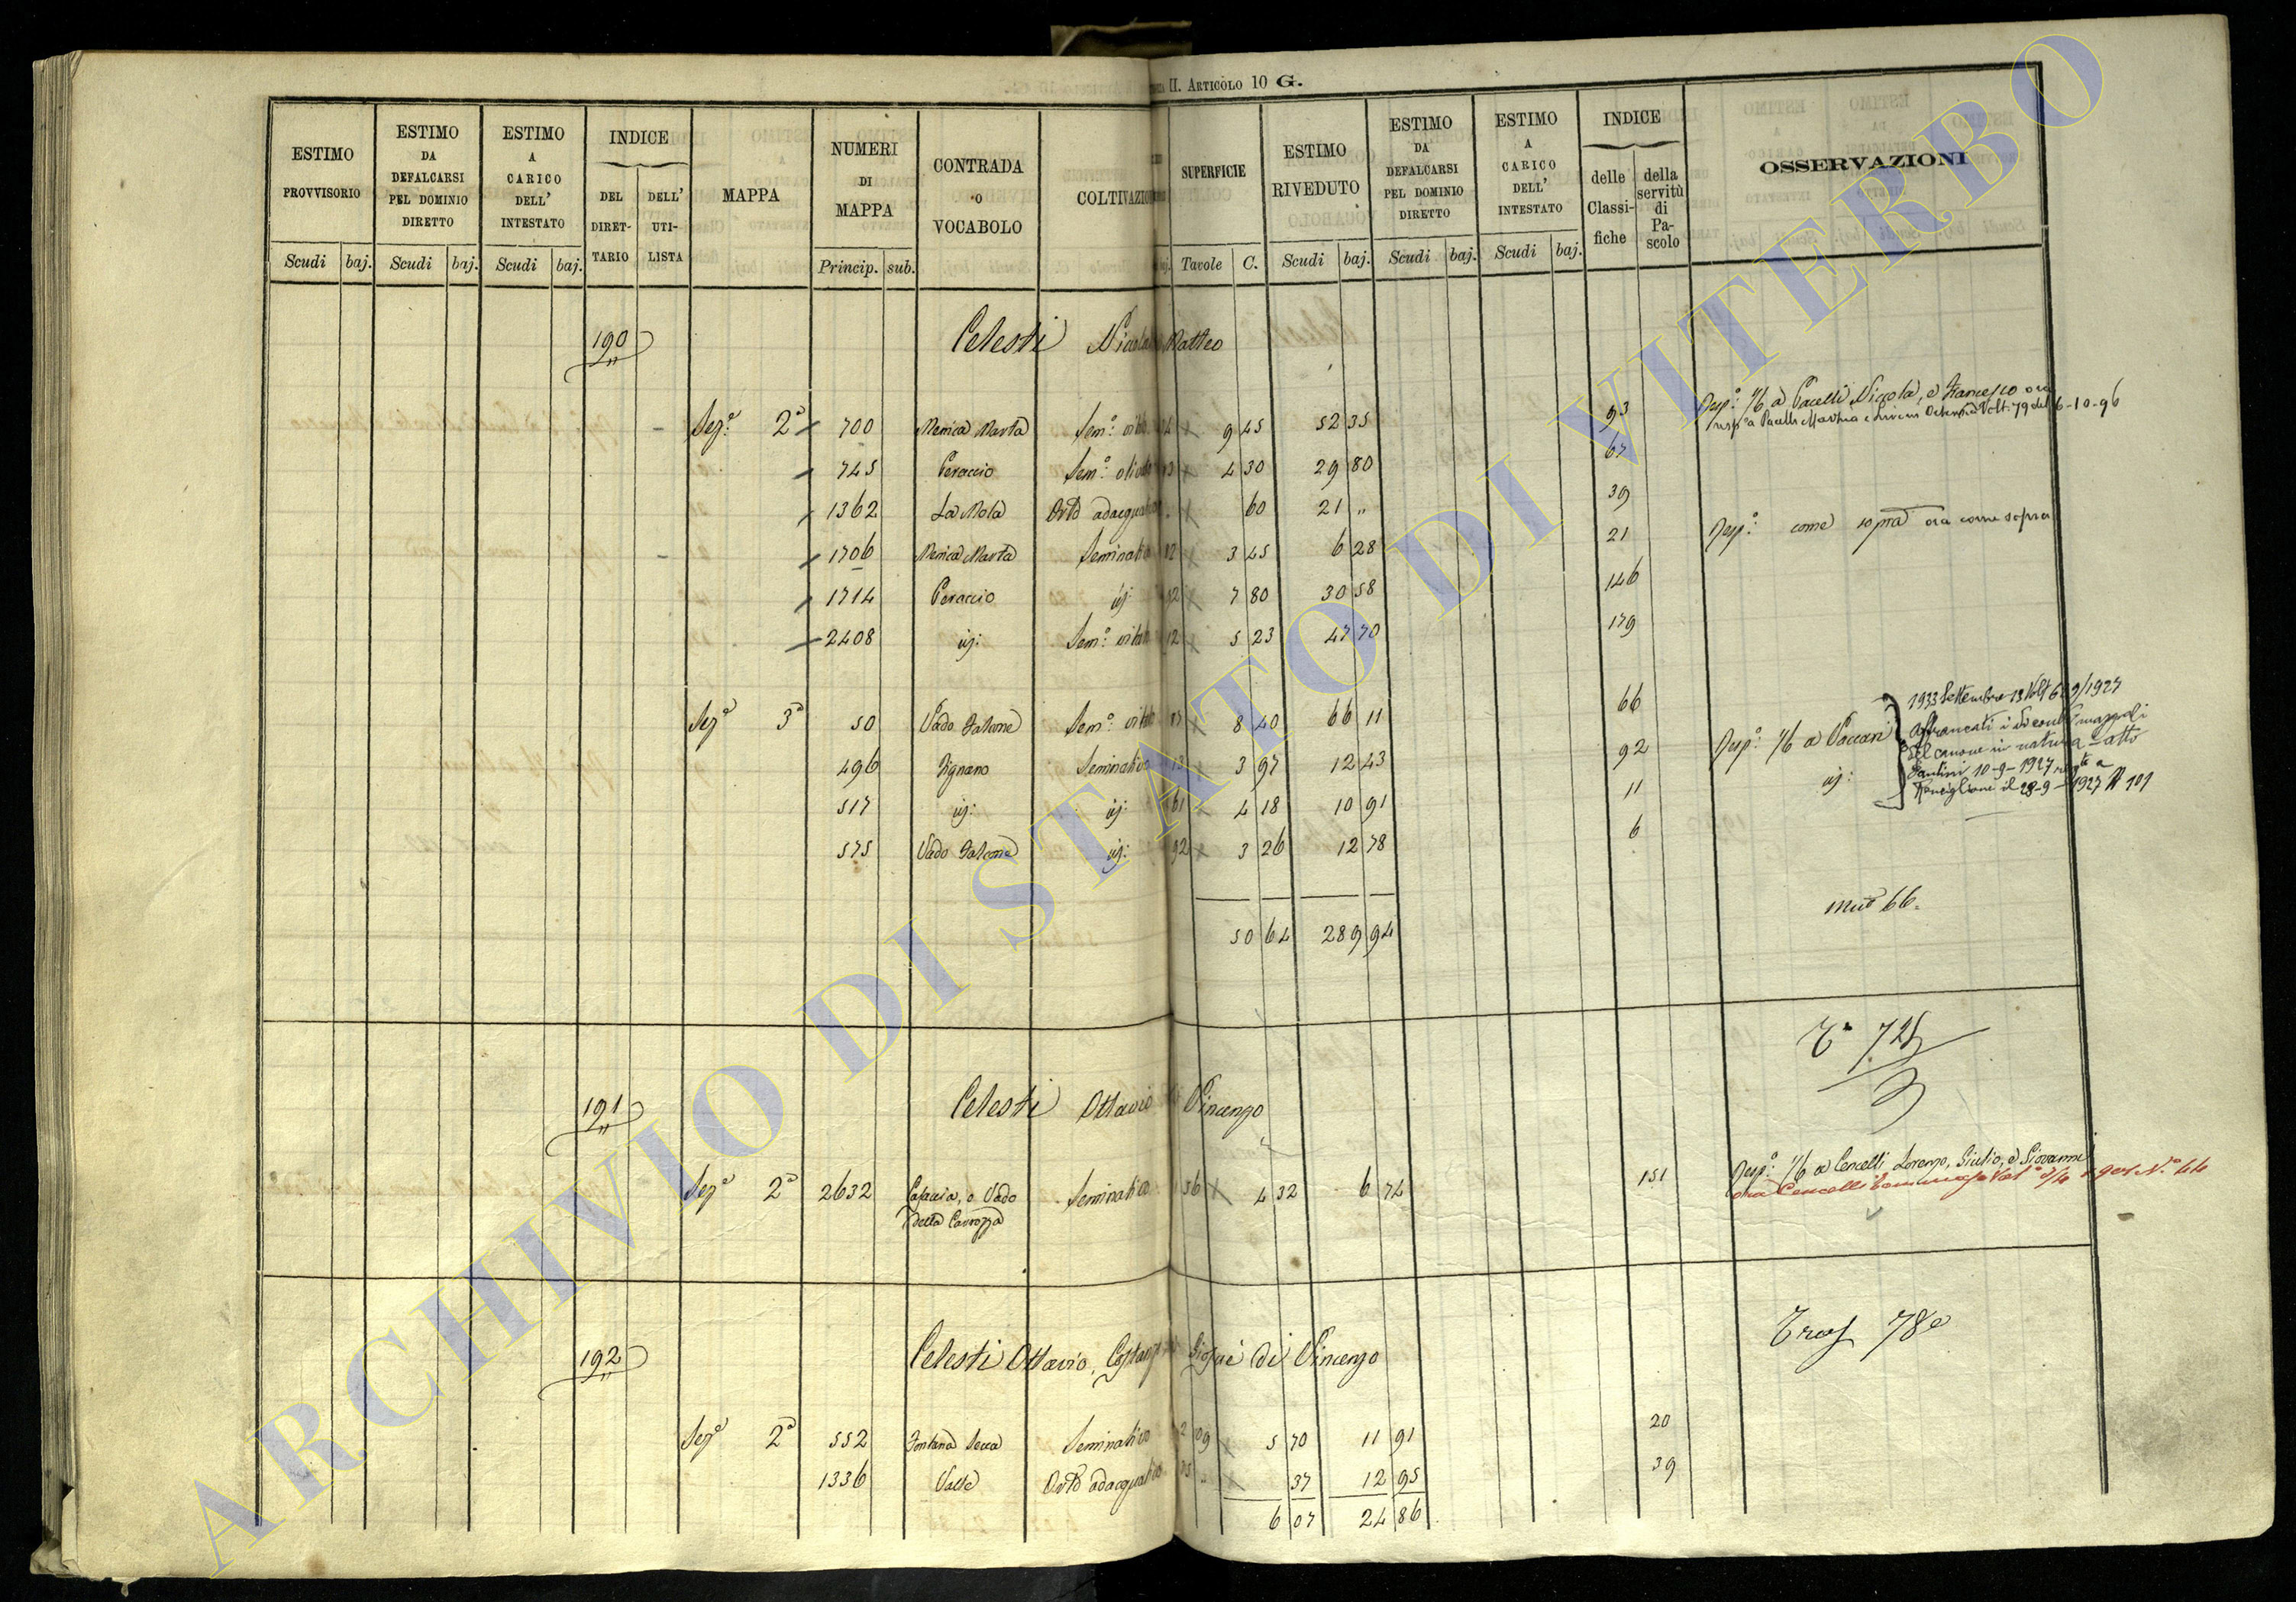 II. ARTICOLO 10 G.
ESTIMO PROVVISORIO Scudi baj.
ESTIMO DA DEFALCARSI PEL DOMINIO DIRETTO Scudi baj.
ESTIMO A CARICO DELL' INTESTATO Scudi baj.
INDICE DEL DIRETTARIO DELL' UTILISTA
MAPPA
NUMERI DI MAPPA Princip. sub.
CONTRADA O VOCABOLO
COLTIVAZIO
SUPERFICIE Tavole C.
ESTIMO RIVEDUTO Scudi baj.
ESTIMO DA DEFALCARSI PEL DOMINIO DIRETTO Scudi baj.
ESTIMO A CARICO DELL' INTESTATO Scudi baj.
INDICE delle Classifiche della servitù di Pascolo
OSSERVAZIONI
190 Celesti Matteo
Sez.e 2a 700 Marta Sem.o 9 45 52 35 93 Risp.a 1/6 a Pacelli Niccola, e Francesco ora
6-10-96
745 Peraccio Sem.o 4 30 29 80 67
1362 La Mola Orto 60 21 " 39
1706 Marta 3 45 6 28 21 Risp.a come sopra ora come sopra
1714 Peraccio id: 7 80 30 58 146
2408 id: Sem.o 5 23 47 70 179
Sez.e 3a 50 Vado Falcone Sem.o 8 40 66 11 66 Risp.a 1/6 a Vaccari
496 Fignano Seminativo 3 97 12 43 92 id:
517 id: id: 4 18 10 91 11
575 Vado Falcone id: 3 26 12 78 6
1933 Settembre 13 Volt 629/1927
Affrancati i
del canone in natura - atto
Fantini 10-9-1927
Ronciglione il 28-9-1927 N 101
50 64 289 94
66
725
191 Celesti Ottavio Vincenzo
Sez.e 2a 2632 o Vado Seminativo 4 32 6 74 151 Risp.a 1/6 a Cencelli Lorenzo, Giulio, e Giovanni
della Carrozza
ora Cencelli Tommaso
Tras 78
192 Celesti Ottavio, Giosuè di Vincenzo
Sez.e 2a 552 Fontana Secca Seminativo 5 70 11 91 20
1336 Valle Orto 37 12 95 39
6 07 24 86
ARCHIVIO DI STATO DI VITERBO